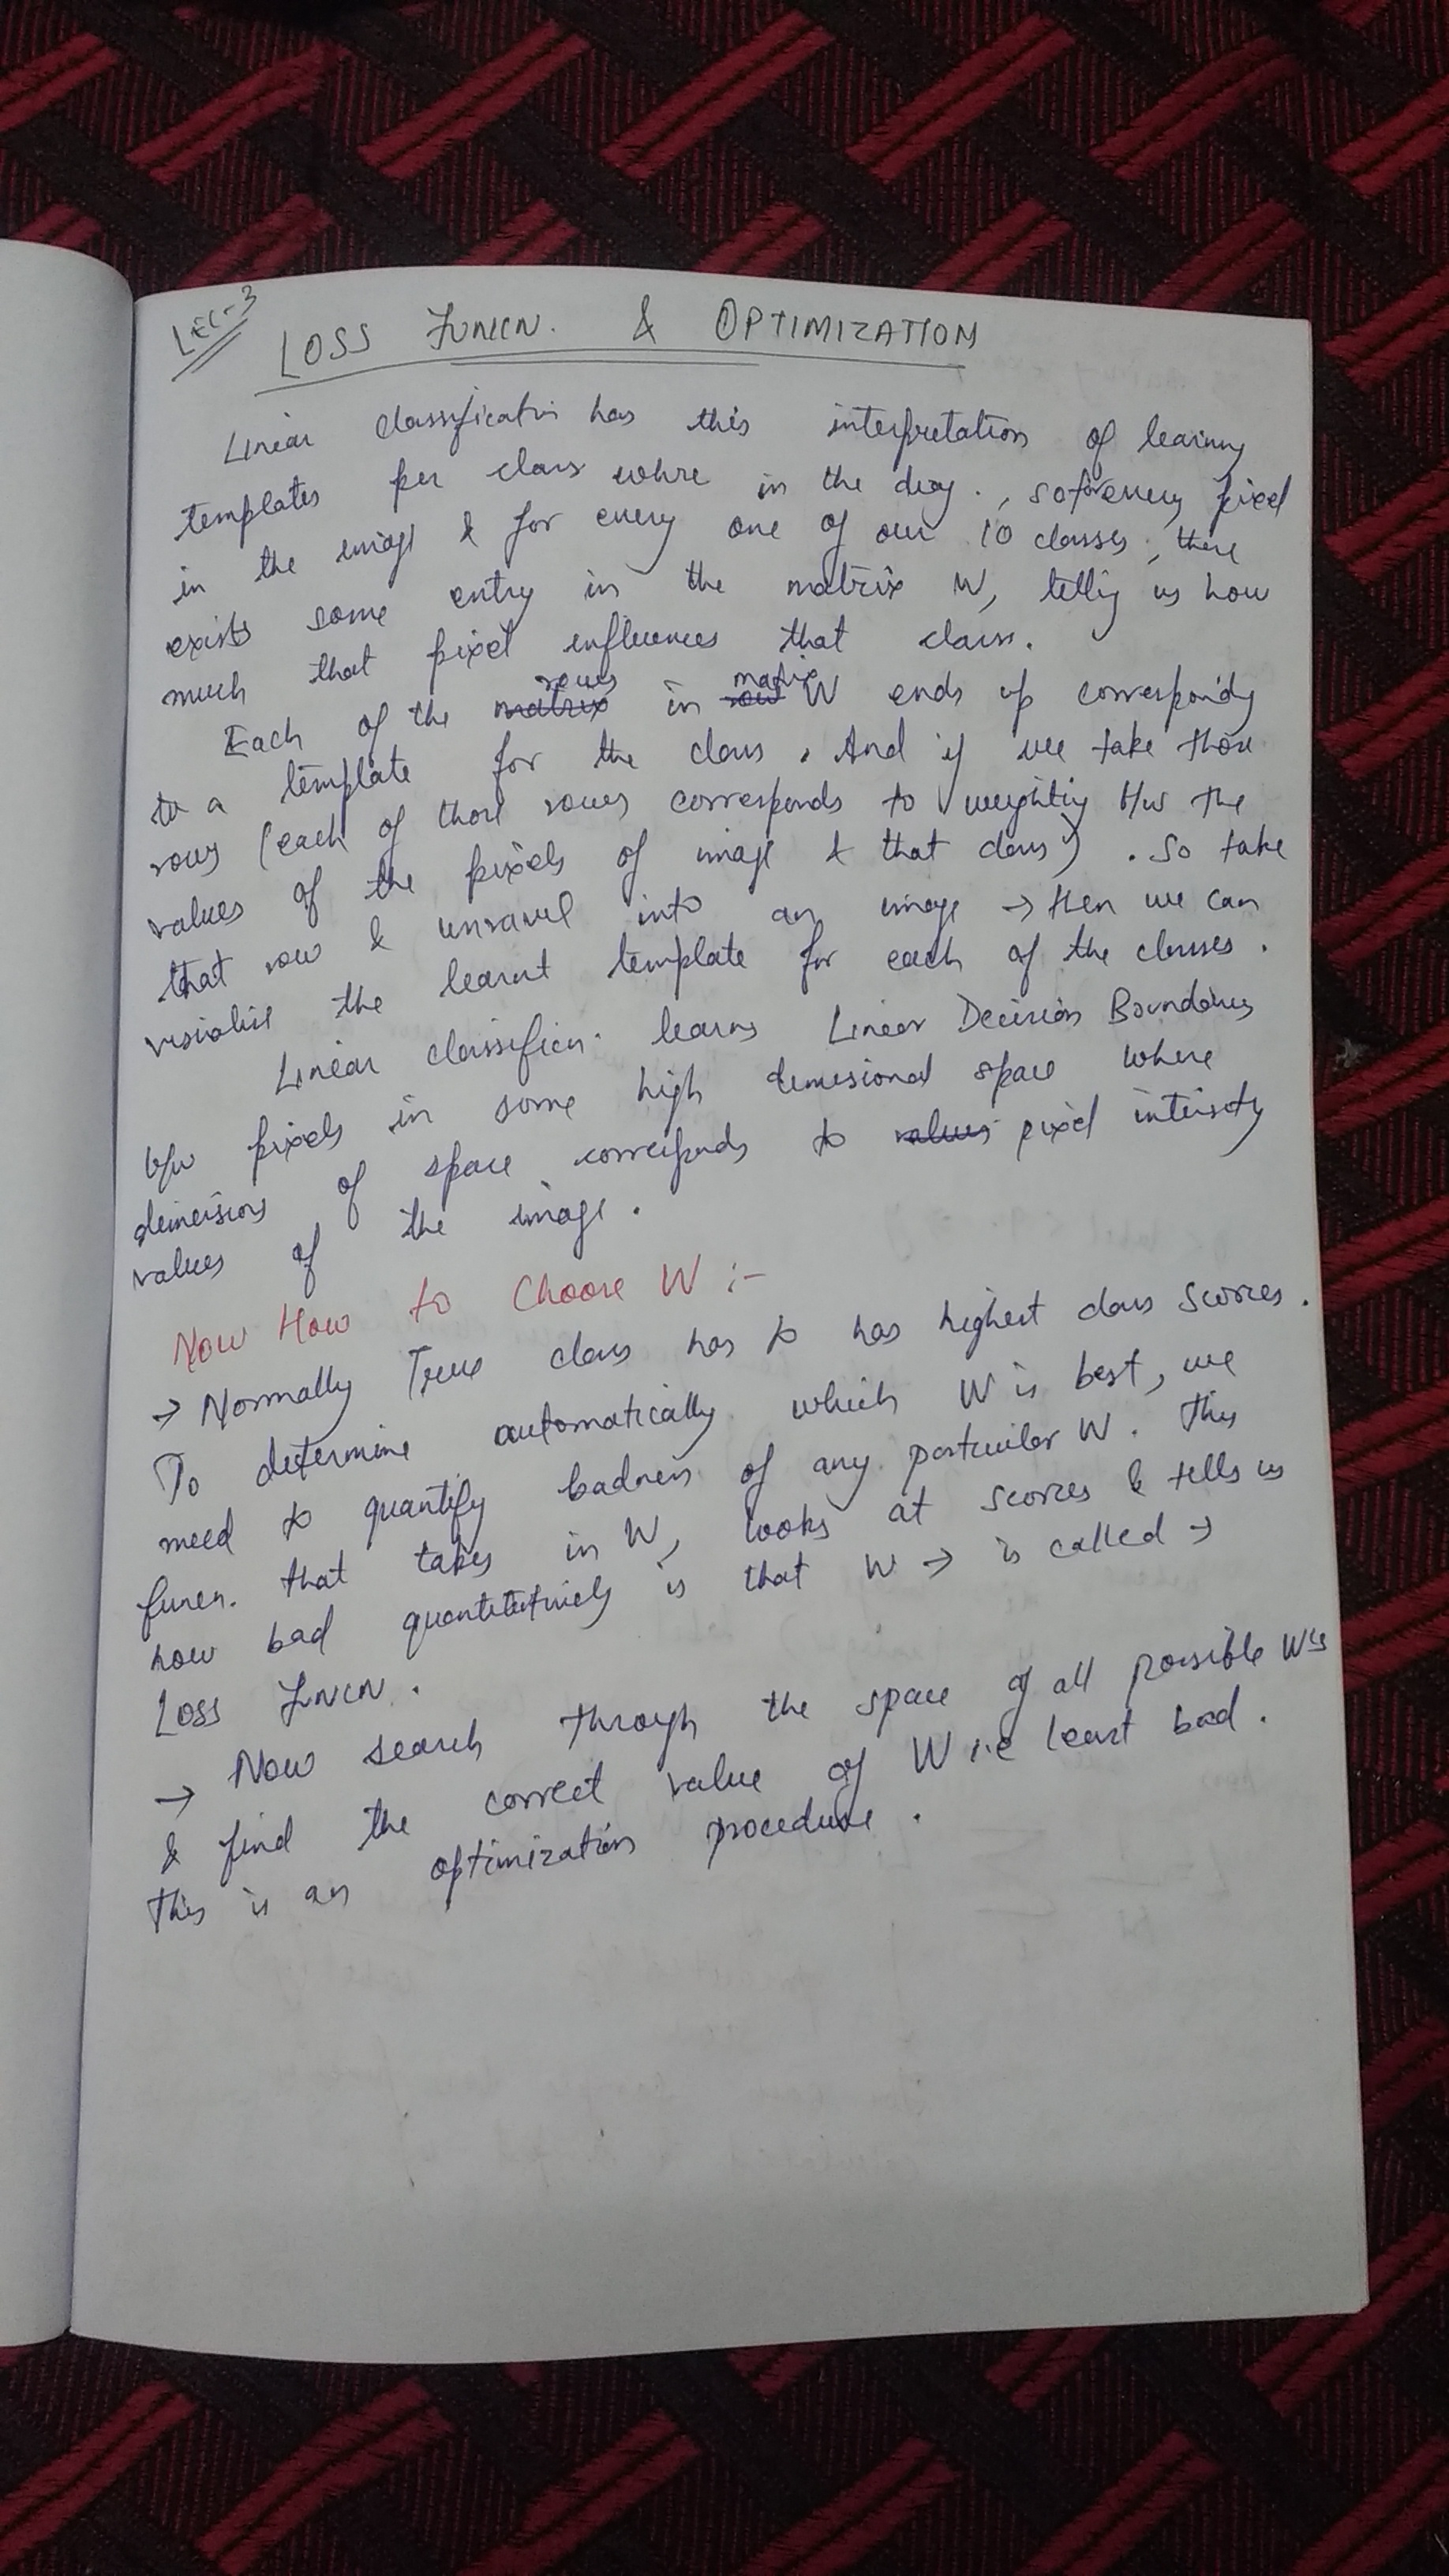 LEC-3
LOSS FUNCN. & OPTIMIZATION
Linear classificatin has this interpretation of learning
templates per class where in the diag., so for every pixel
in the image & for every one of our 10 classes, there
exists some entry in the matrix W, tellig us how
much that pixel influences that class.
Each of the matrix rows in row matrix W ends up correspondg
to a template for the class. And if we take those
rows (each of those rows corresponds to weightig b/w the
values of the pixels of image & that class). So take
that row & unravel into an image → then we can
visialise the learnt template for each of the classes.
Linear classificn. learns Linear Decision Boundaries
b/w pixels in some high demesional space where
dimensions of space corresponds to values pixel intensity
values of the image.
Now How to Choose W :-
→ Normally True class has to has highest class scores.
To determine automatically which W is best, we
need to quantify badness of any particular W. This
funcn. that takes in W, looks at scores & tells us
how bad quantitatively is that W → is called →
Loss FNCN.
→ Now search through the space of all possible W's
& find the correct value of W i.e least bad.
This is an optimization procedure.